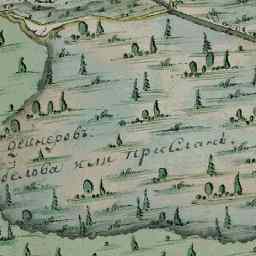 дейнеровъ
белова или пристань.